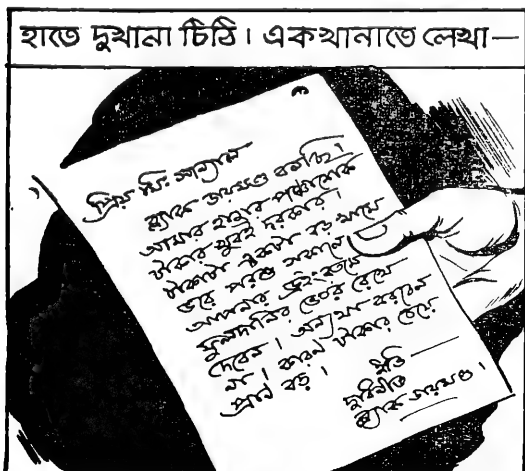 হাতে দুখানা চিঠি। একখানাতে লেখা—
প্রিয় মিঃ সান্যাল
ব্ল্যাক ডায়মণ্ড বলছি।
আমার হাজার পঞ্চাশেক
টাকার খুবই দরকার।
টাকাটা একটা বড় খামে
ভরে পরশু সকালে
আপনার ড্রইংরুমে
ফুলদানির ভেতর রেখে
দেবেন। অন্যথা করবেন
না। কারণ টাকার চেয়ে
প্রাণ বড়।
ইতি—
দুর্বিনীত
ব্ল্যাক ডায়মণ্ড।